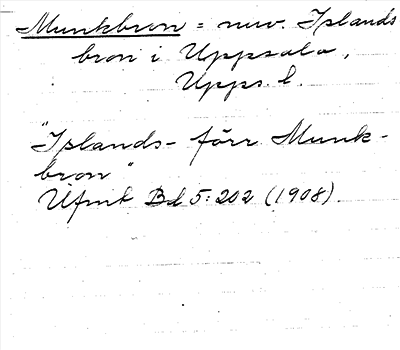 Munkbron = nuv. Islands
bron i Uppsala,
Upps. l.
"Islands- förr Munk-
bron"
Ufmt Bd 5:202 (1908).